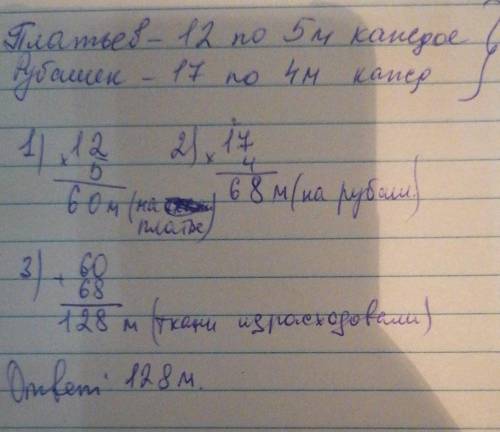 Платьев - 12 по 5м каждое
Рубашек - 17 по 4м кажд
1) × 12 2) × 17
5 4
60м (на платье) 68м (на рубаш.)
3) + 60
68
128 м (ткани израсходовали)
Ответ: 128м.